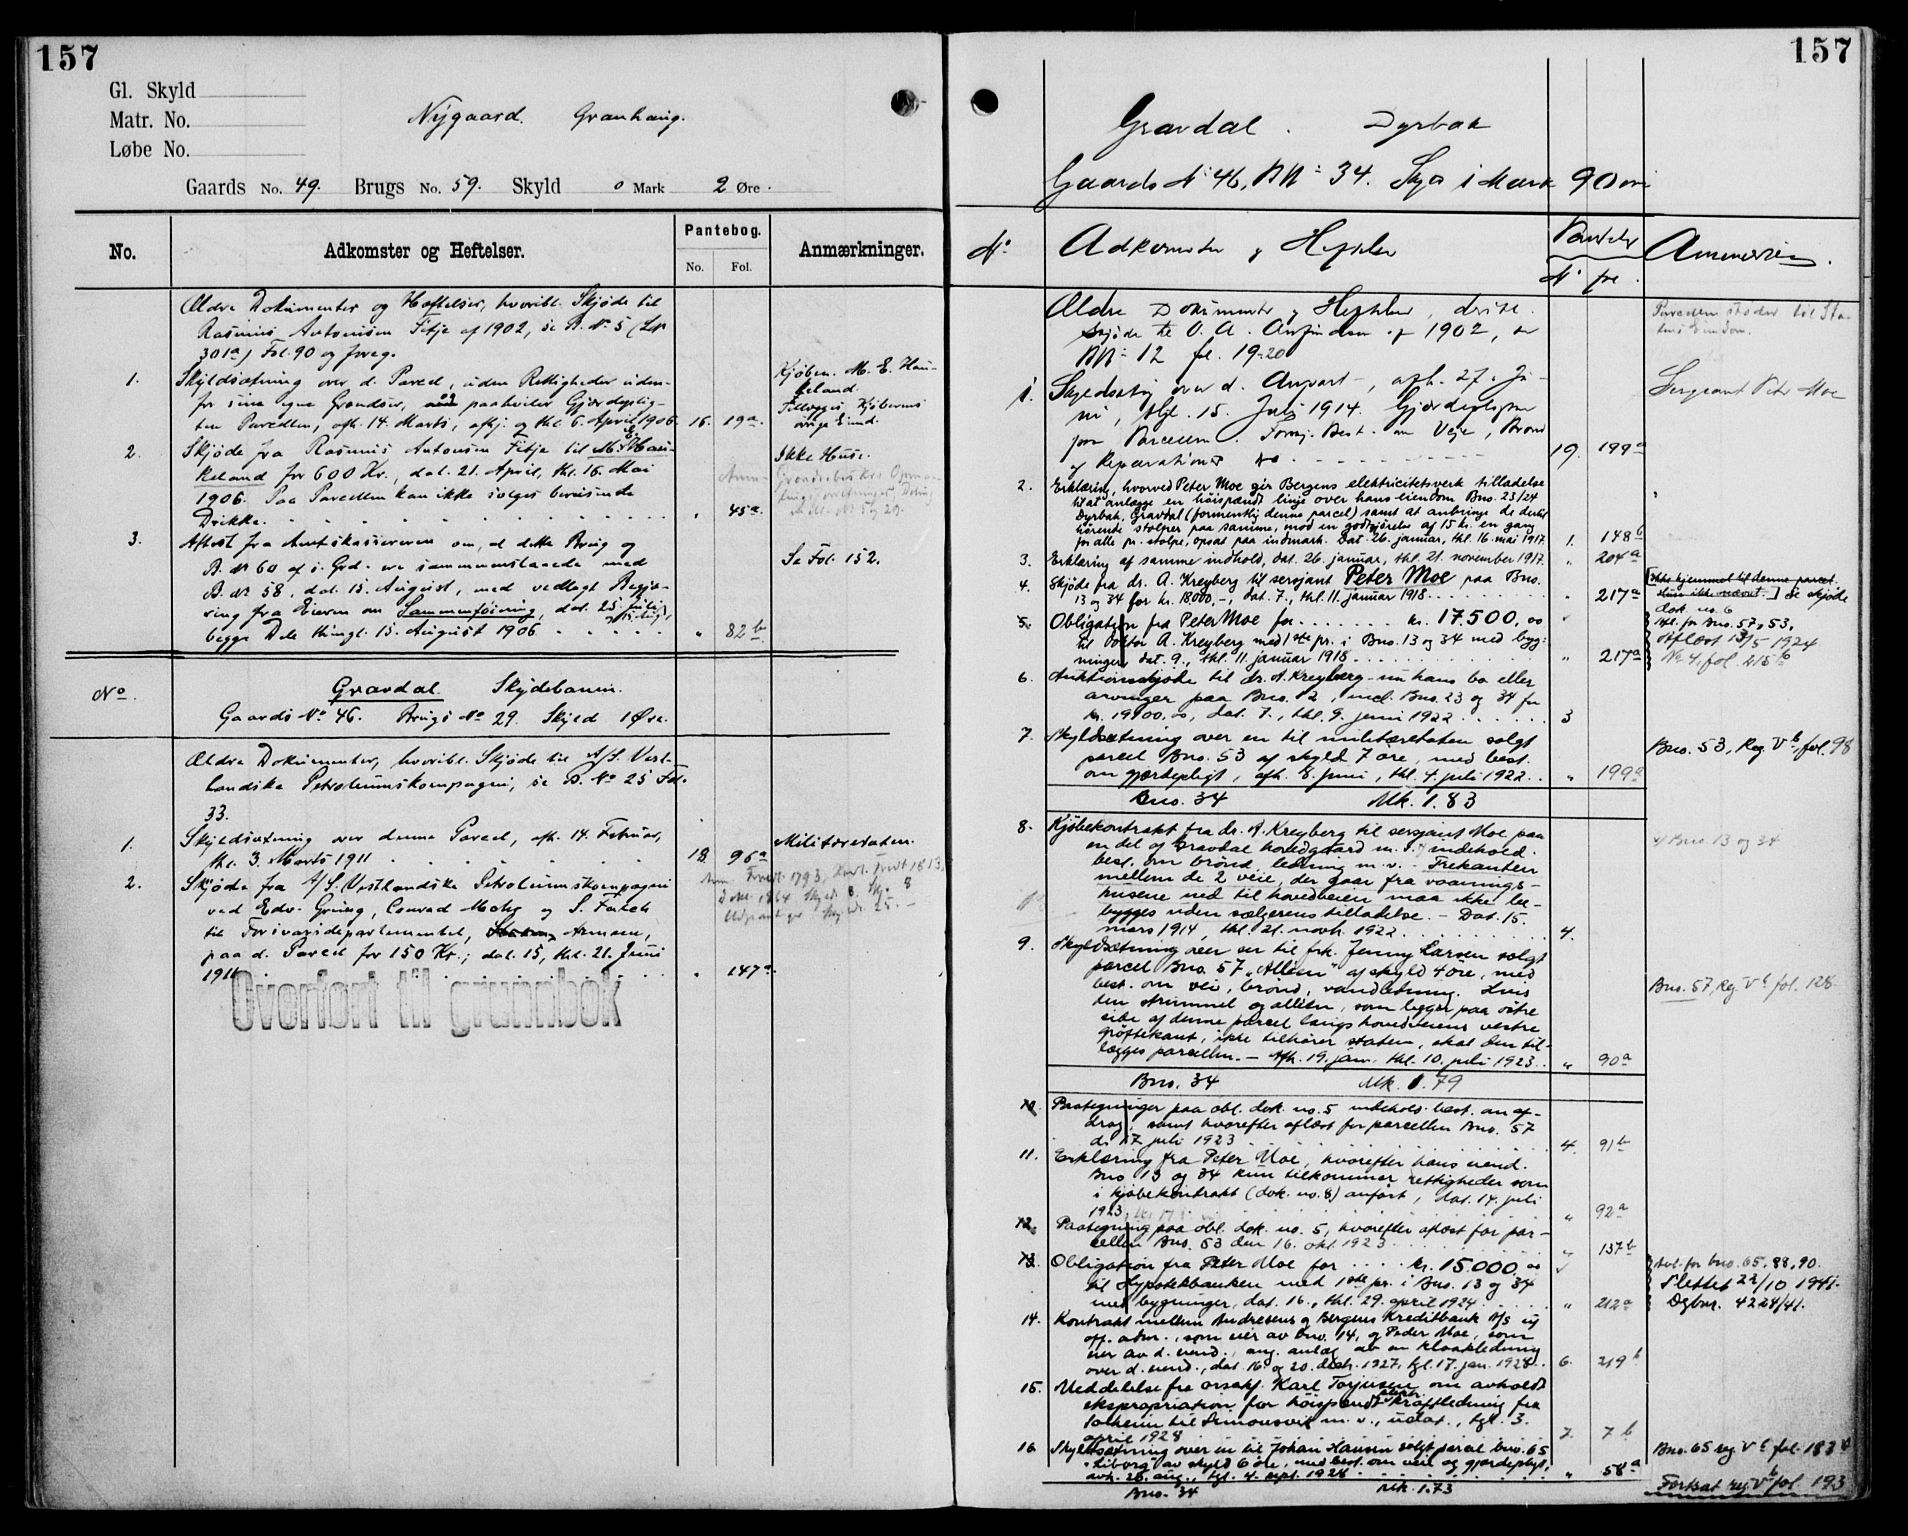 157
Gl. Skyld
Matr. No.
Løbe No.
Nygaard. Granhaug.
Gaards No. 49. Brugs No. 59. Skyld 0 Mark 2 Øre.
No.
Adkomster og Heftelser.
Pantebog.
No. Fol.
Anmærkninger.
Ældre Dokumenter og Hæftelser, hvoribl. Skjøde til
Rasmus Antonsen Fitje af 1902, se B. No. 5 (
301a) Fol. 90 og foreg.
1. Skyldsætning over d. Parcel, uden Rettigheder uden-
for sine egne Grændser, paahviler Gjærdeplig-
ten Parcellen, afh. 14. Marts, afhj. og thl. 6. April 1906. 16. 19a.
Kjøber. M. E. Hau-
keland.
Tillægges Kjøberens
øvrige Eiend.
2. Skjøde fra Rasmus Antonsen Fitje til M. E. Hau-
keland for 600 Kr., dat. 21. April, thl. 16. Mai
1906. Paa Parcellen kan ikke sælges berusende
Drikke. " 45a.
Ikke Huse.
3. Attest fra Amtskassereren om, at dette Brug og
B. No 60 af s. Grd. ere sammenstaaede med
B. No 58, dat. 15. August, med vedlagt Begjæ-
ring fra Eieren om Sammenføining, dat. 25 Juli,
begge Dele thingl. 15. August 1906 " 82b
Se Fol. 152.
No. Gravdal. Skydebanen.
Gaards No. 46. Brugs No. 29. Skyld 1 Øre.
Ældre Dokumenter, hvoribl. Skjøde til A/S. Vest-
landske Petroleumskompagni, se B. No 25 Fol.
33.
1. Skyldsætning over denne Parcel, afh. 14. Februar,
thl. 3. Marts 1911 18 96a
Militæretaten.
2. Skjøde fra A/S. Vestlandske Petroleumskompagni
ved Edv. Grieg, Conrad Mohr og S.
til Forsvarsdepartementet, Armeen,
paa d. Parcel for 150 Kr., dat. 15, thl. 21. Juni
1911 " 147a.
Overført til grunnbok
157
Gravdal. Dyrbak
Gaards No 46, BN 34. Skyld 1 Mark 90 øre
No Adkomster og Heftelser
No fol.
Ældre Dokumenter og Heftelser, deribl.
Skjøde til O. A. Anfindsen af 1902, se
BN 12 fol. 19-20
Parcellen støder til Sta-
tens Eiendom.
1. Skyldsætning over d. Anpart, afh. 27. Ju-
ni, thgl. 15. Juli 1914. Gjærdepligten
paa Parcellen. Best. om Veje, Brønd
og Reparationer 19. 199a
Sergeant Peter Moe
2. Erklæring, hvorved Peter Moe gir Bergens elektricitetsverk tilladelse
til at anlægge en høispændt linje over hans eiendom Bno. 23/24
Dyrbak, Gravdal (formentlig denne parcel) samt at anbringe de dertil
hørende stolper paa samme, mod en godtgjørelse af 15 kr. en gang
for alle pr. stolpe, opsat paa indmark. Dat. 26. januar, thl. 16. mai 1917. 1. 148b
3. Erklæring af samme indhold, dat. 26. januar, thl. 21. november 1917. " 204a
4. Skjøde fra dr. A. Kreyberg til sersjant Peter Moe paa Bno.
13 og 34 for kr. 18,000,-, dat. 7., thl. 11. januar 1918. " 217a
Ikke hjemmel til denne parcel.
Se skjøde
dok. no. 6
5. Obligation fra Peter Moe for kr. 17.500,00
til doktor A. Kreyberg med 1ste pr. i Bno. 13 og 34 med byg-
ninger, dat. 9., thl. 11. januar 1918. " 217a
for Bno. 57, 53,
Aflæst 13/5 1924
No 4, fol. 215b
6. Auktionsskjøde til dr. A. Kreyberg - nu hans bo eller
arvinger paa Bno. 2, incl. Bno. 23 og 34 for
kr. 19100,00, dat. 7., thl. 9. juni 1922. 3
7. Skyldsætning over en til militæretaten solgt
parcel Bno. 53 af skyld 7 øre, med best.
om gjærdepligt, afh. 8. juni, thl. 4. juli 1922. " 199a
Bno. 53, Reg Vb, fol. 98
Bno. 34 Mk. 1.83
8. Kjøbekontrakt fra dr. A. Kreyberg til sersjant Moe paa
en del af Gravdal hovedgaard m. v., indehold.
best. om brønd, ledning m. v. - Trekanten
mellem de 2 veie, der gaar fra vaanings-
husene ned til hovedveien maa ikke be-
bygges uden sælgerens tilladelse. - Dat. 15.
mars 1914, thl. 21. novbr. 1922. 4.
Bno 13 og 34
9. Skyldsætning over en til frk. Jenny Larsen solgt
parcel Bno. 57 "Alléen" af skyld 4 øre, med
best. om vei, brønd, vandledning. Hvis
den strimmel og alléen, som ligger paa østre
side af denne parcel langs hovedveiens vestre
grøftekant, ikke tilhører staten, skal den til-
lægges parcellen. - Afh. 19. jan., thl. 10. juli 1923. " 90a
Bno. 57, Reg Vb fol. 128
Bno. 34 Mk. 1.79
10. Paategninger paa obl. dok. no. 5 indehold. best. om af-
drag, samt hvorefter aflæst for parcellen Bno. 57
d. 17 juli 1923. 4. 91b
11. Erklæring fra Peter Moe, hvorefter hans eiend.
Bno 13 og 34 kun tilkommer rettigheder som
i kjøbekontrakt (dok. no. 8) anført, dat. 14. juli
1923. " 92a
12. Paategning paa obl. dok. no. 5, hvorefter aflæst for par-
cellen Bno. 53 den 16. okt. 1923. " 137b
13. Obligation fra Peter Moe for kr. 15.000,00
til Hypotekbanken med 1ste pr. i Bno. 13 og 34
med bygninger, dat. 16., thl. 29. april 1924. " 212a
for bno. 65, 88, 90.
Slettet 22/10 1941.
Dgbnr. 4224/41.
14. Kontrakt mellem Andresens og Bergens Kreditbank A/S u/
off. adm., som eier av bno. 14, og Peder Moe, som
eier av d. eiend., ang. anlæg av en kloakledning
over d. eiend., dat. 16. og 20. desbr. 1927, tgl. 17. jan. 1928. 6. 219b
15. Meddelelse fra orsakf. Karl Torjusen om avholdt
ekspropriation for høispændt elektr. kraftledning fra
Solheim til Simonsvik m. v., udat., tgl. 3.
april 1928 7. 7b
16. Skyldsætning over en til Johan Hansen solgt parcel bno. 65
"Liborg" av skyld 6 øre, med best. om vei og gjerdepligt,
avh. 26. aug., tgl. 4. sept. 1928. " 58a
Bno. 65 reg Vb fol. 183
Bno. 34 Mk. 1.73
Fortsat reg Vb fol. 193